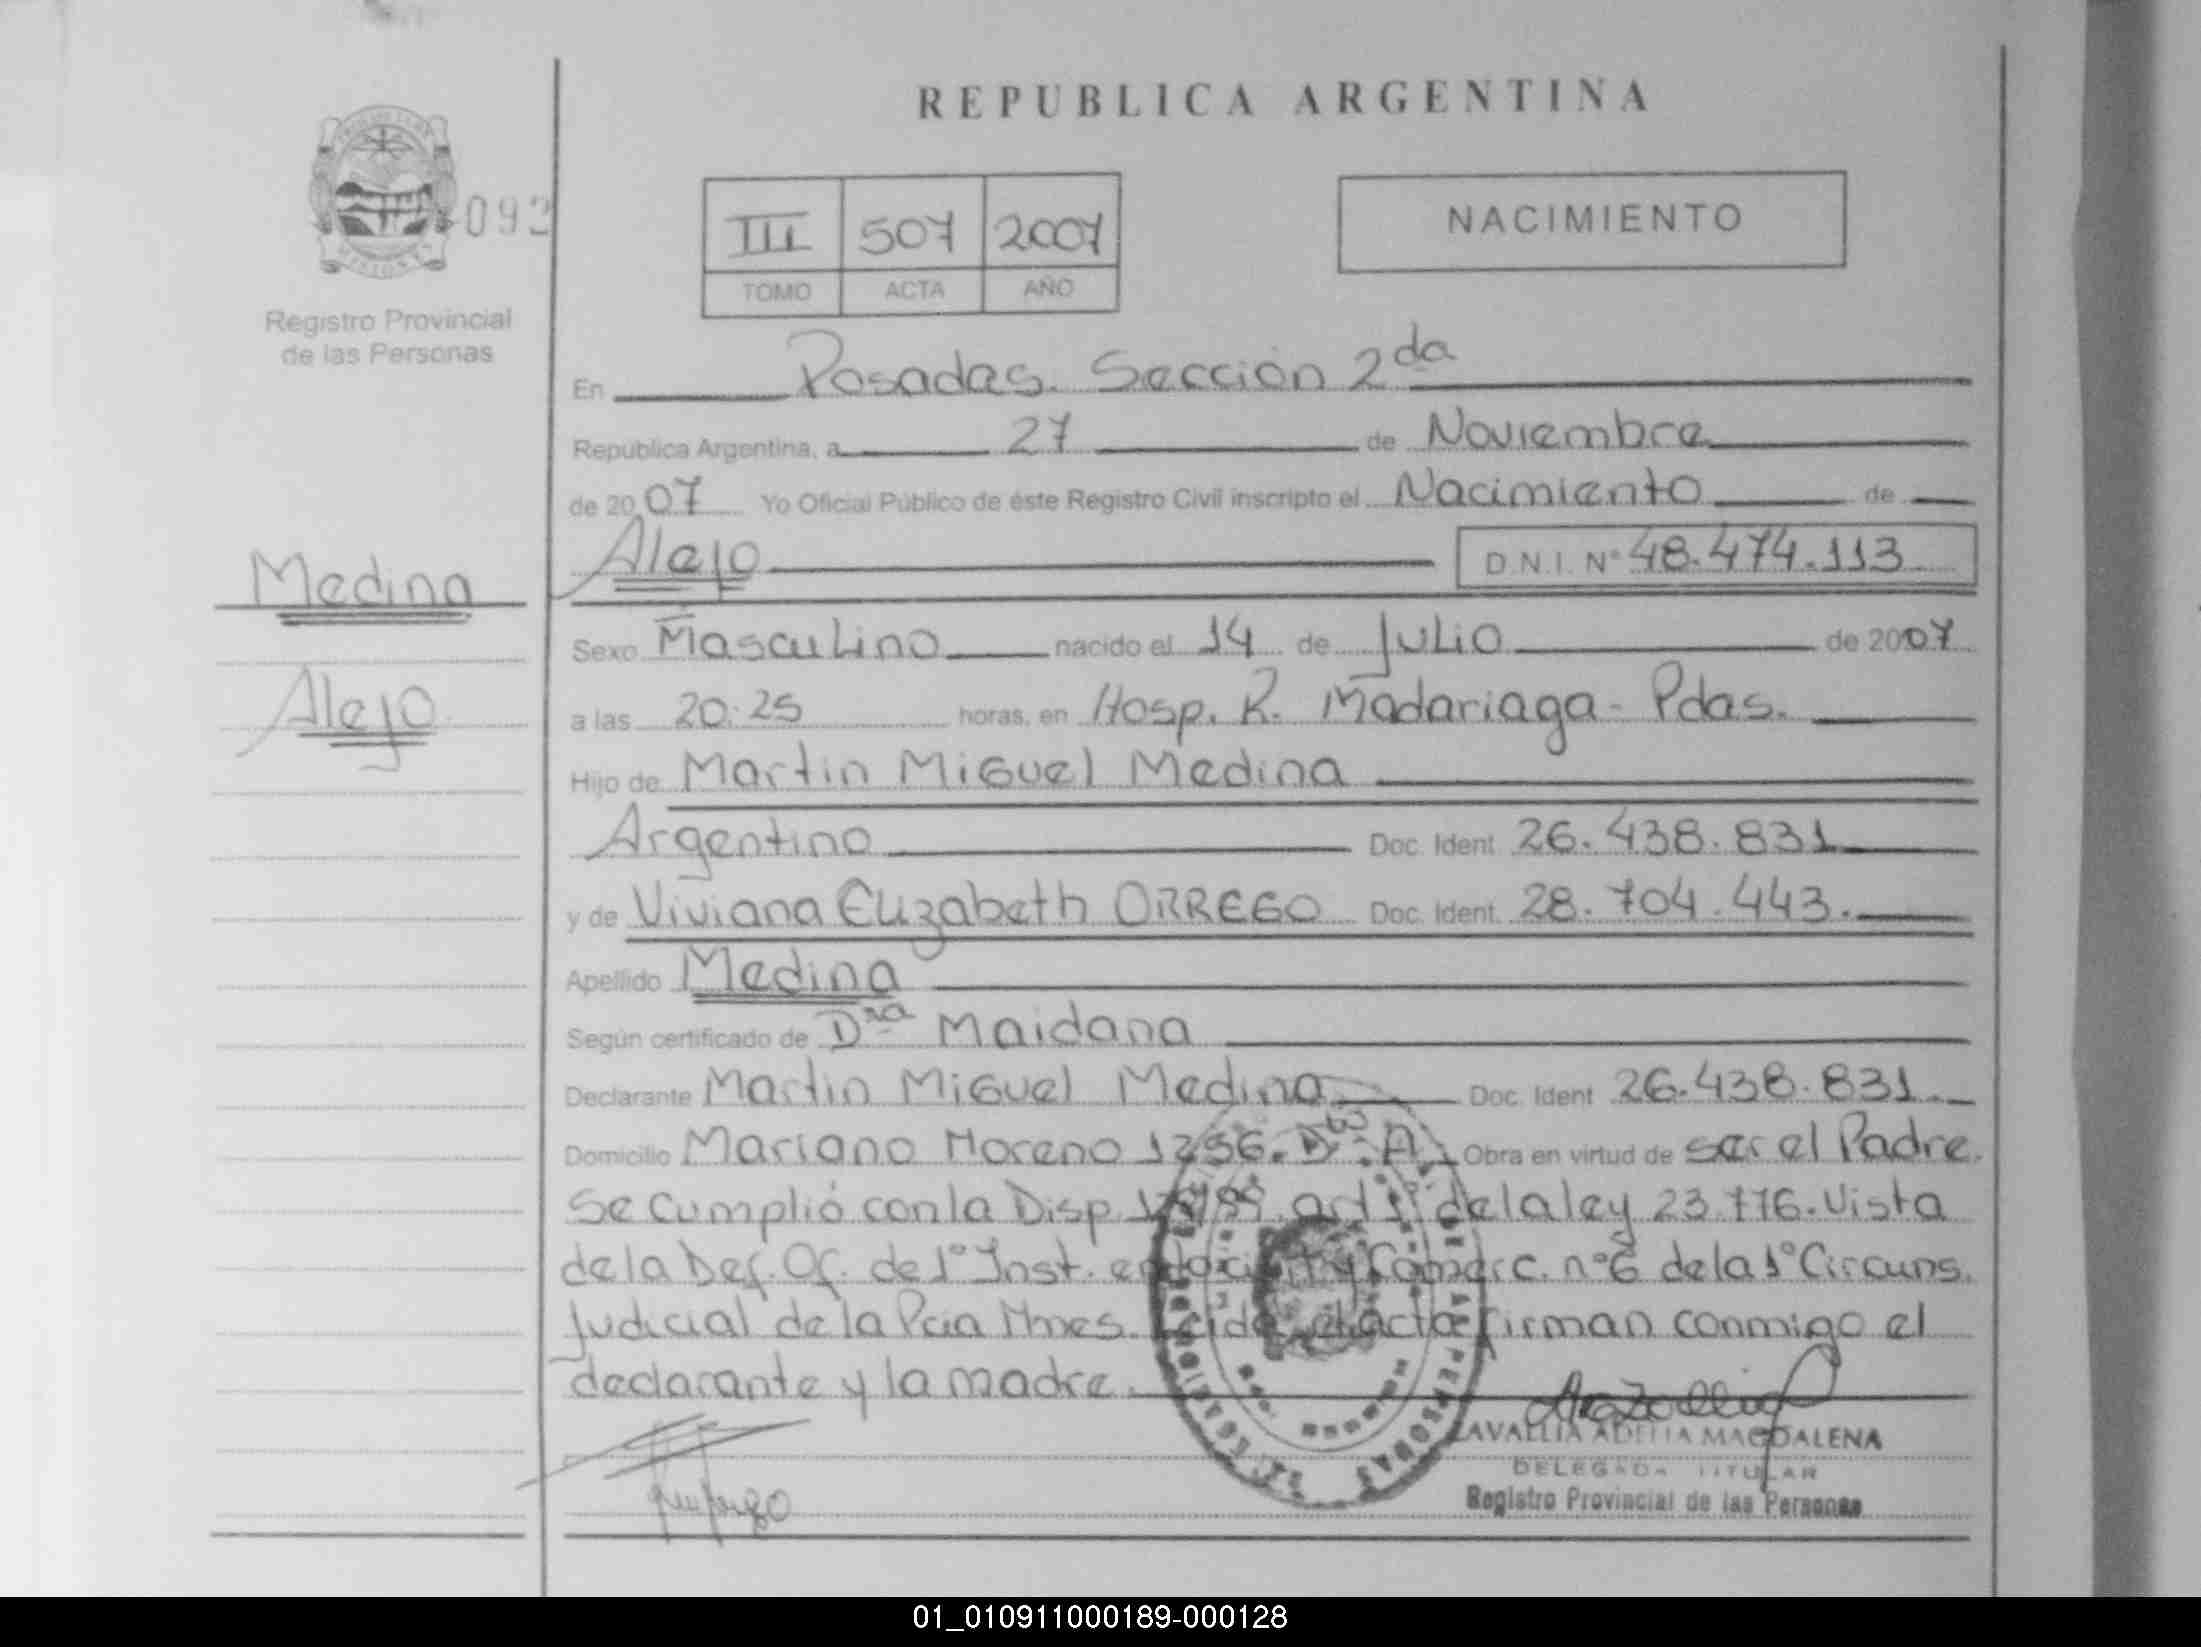 REPUBLICA ARGENTINA
092
III 507 2007
TOMO ACTA AÑO
NACIMIENTO
Registro Provincial
de las Personas
En Posadas. Sección 2da
Republica Argentina, a 27 de Noviembre
de 2007 Yo Oficial Público de éste Registro Civil inscripto el Nacimiento de
Alejo D.N.I. Nº 48.474.113
Medina
Sexo Masculino nacido el 14 de Julio de 2007
Alejo
a las 20:25 horas, en Hosp. R. Madariaga - Pdas.
Hijo de Martin Miguel Medina
Argentino Doc. Ident. 26.438.831
y de Viviana Elizabeth ORREGO Doc. Ident. 28.704.443.
Apellido Medina
Según certificado de Dra Maidana
Declarante Martin Miguel Medina Doc. Ident 26.438.831.
Domicilio Mariano Moreno 1256. Dto: A. Obra en virtud de ser el Padre.
Se cumplió con la Disp. art 1º de la ley 23.776. Vista
de la Def. Of. de 1º Inst. en lo y Comerc. nº 6 de la 1º Circuns.
Judicial de la Pcia Mnes. el acta firman conmigo el
declarante y la madre.
ADELIA MAGDALENA
DELEGADA TITULAR
Registro Provincial de las Personas
01_010911000189-000128